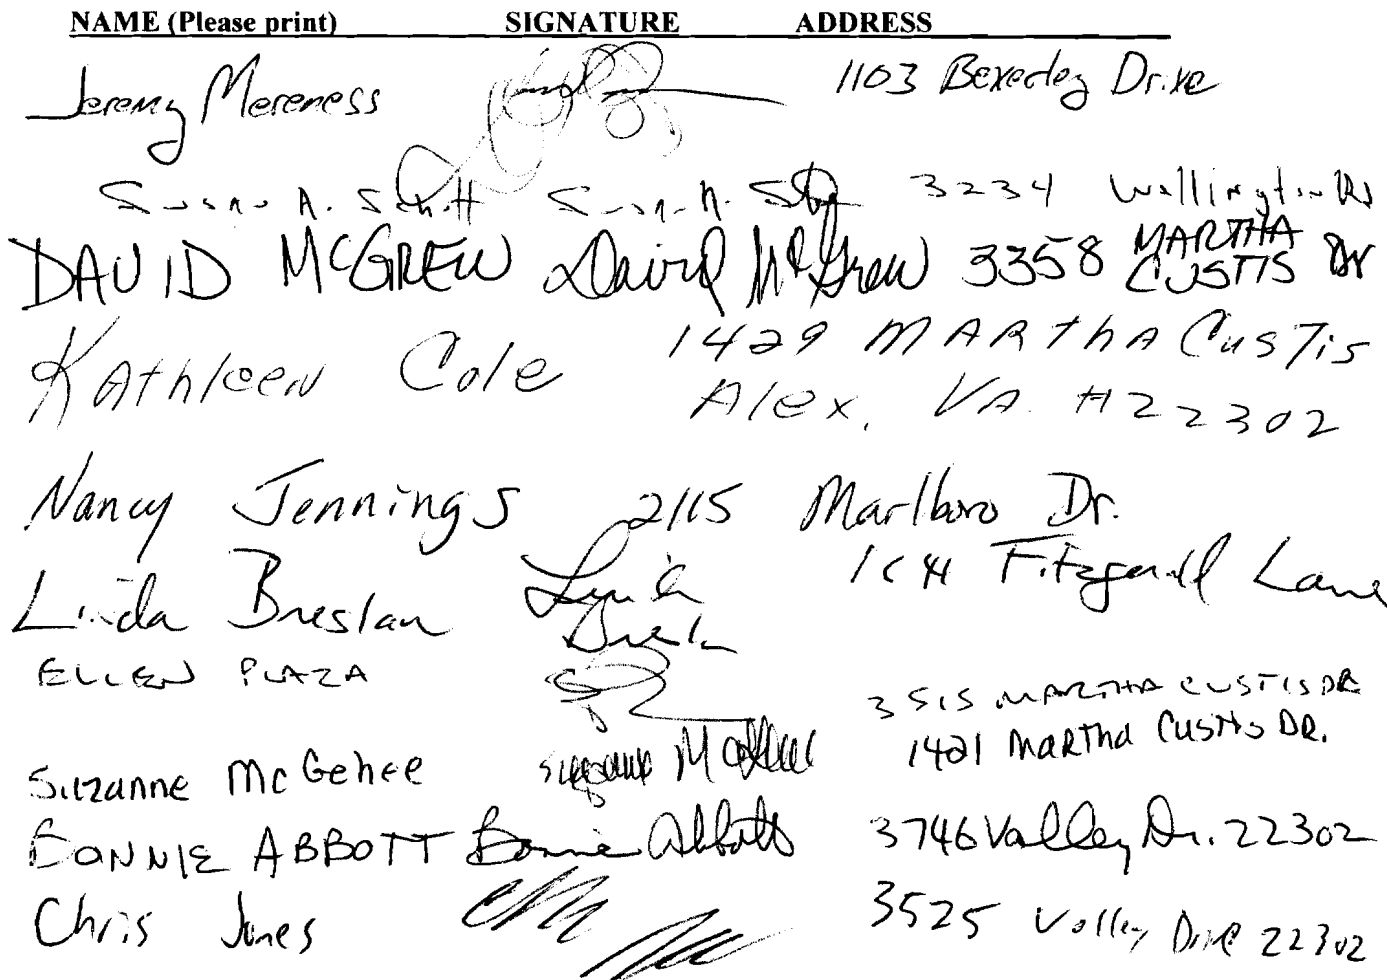 NAME (Please print) SIGNATURE ADDRESS
Jeremy Mereness 1103 Beverley Drive
Susan A. Schitt Susan A. 3234 Wellington Rd
DAVID McGREW David McGrew 3358 MARTHA CUSTIS Dr
Kathleen Cole 1429 MARthA CusTis
Alex, VA. #22302
Nancy Jennings 2115 Marlboro Dr.
Linda Breslan Linda Fitzgerald Lane
ELLEN PLAZA 3515 MARTHA CUSTIS DR
Suzanne McGehee Suzanne McGehee 1421 MaRTha CUSTIS DR.
BONNIE ABBOTT Bonnie Abbott 3746 Valley Dr. 22302
Chris Jones 3525 Valley Drive 22302